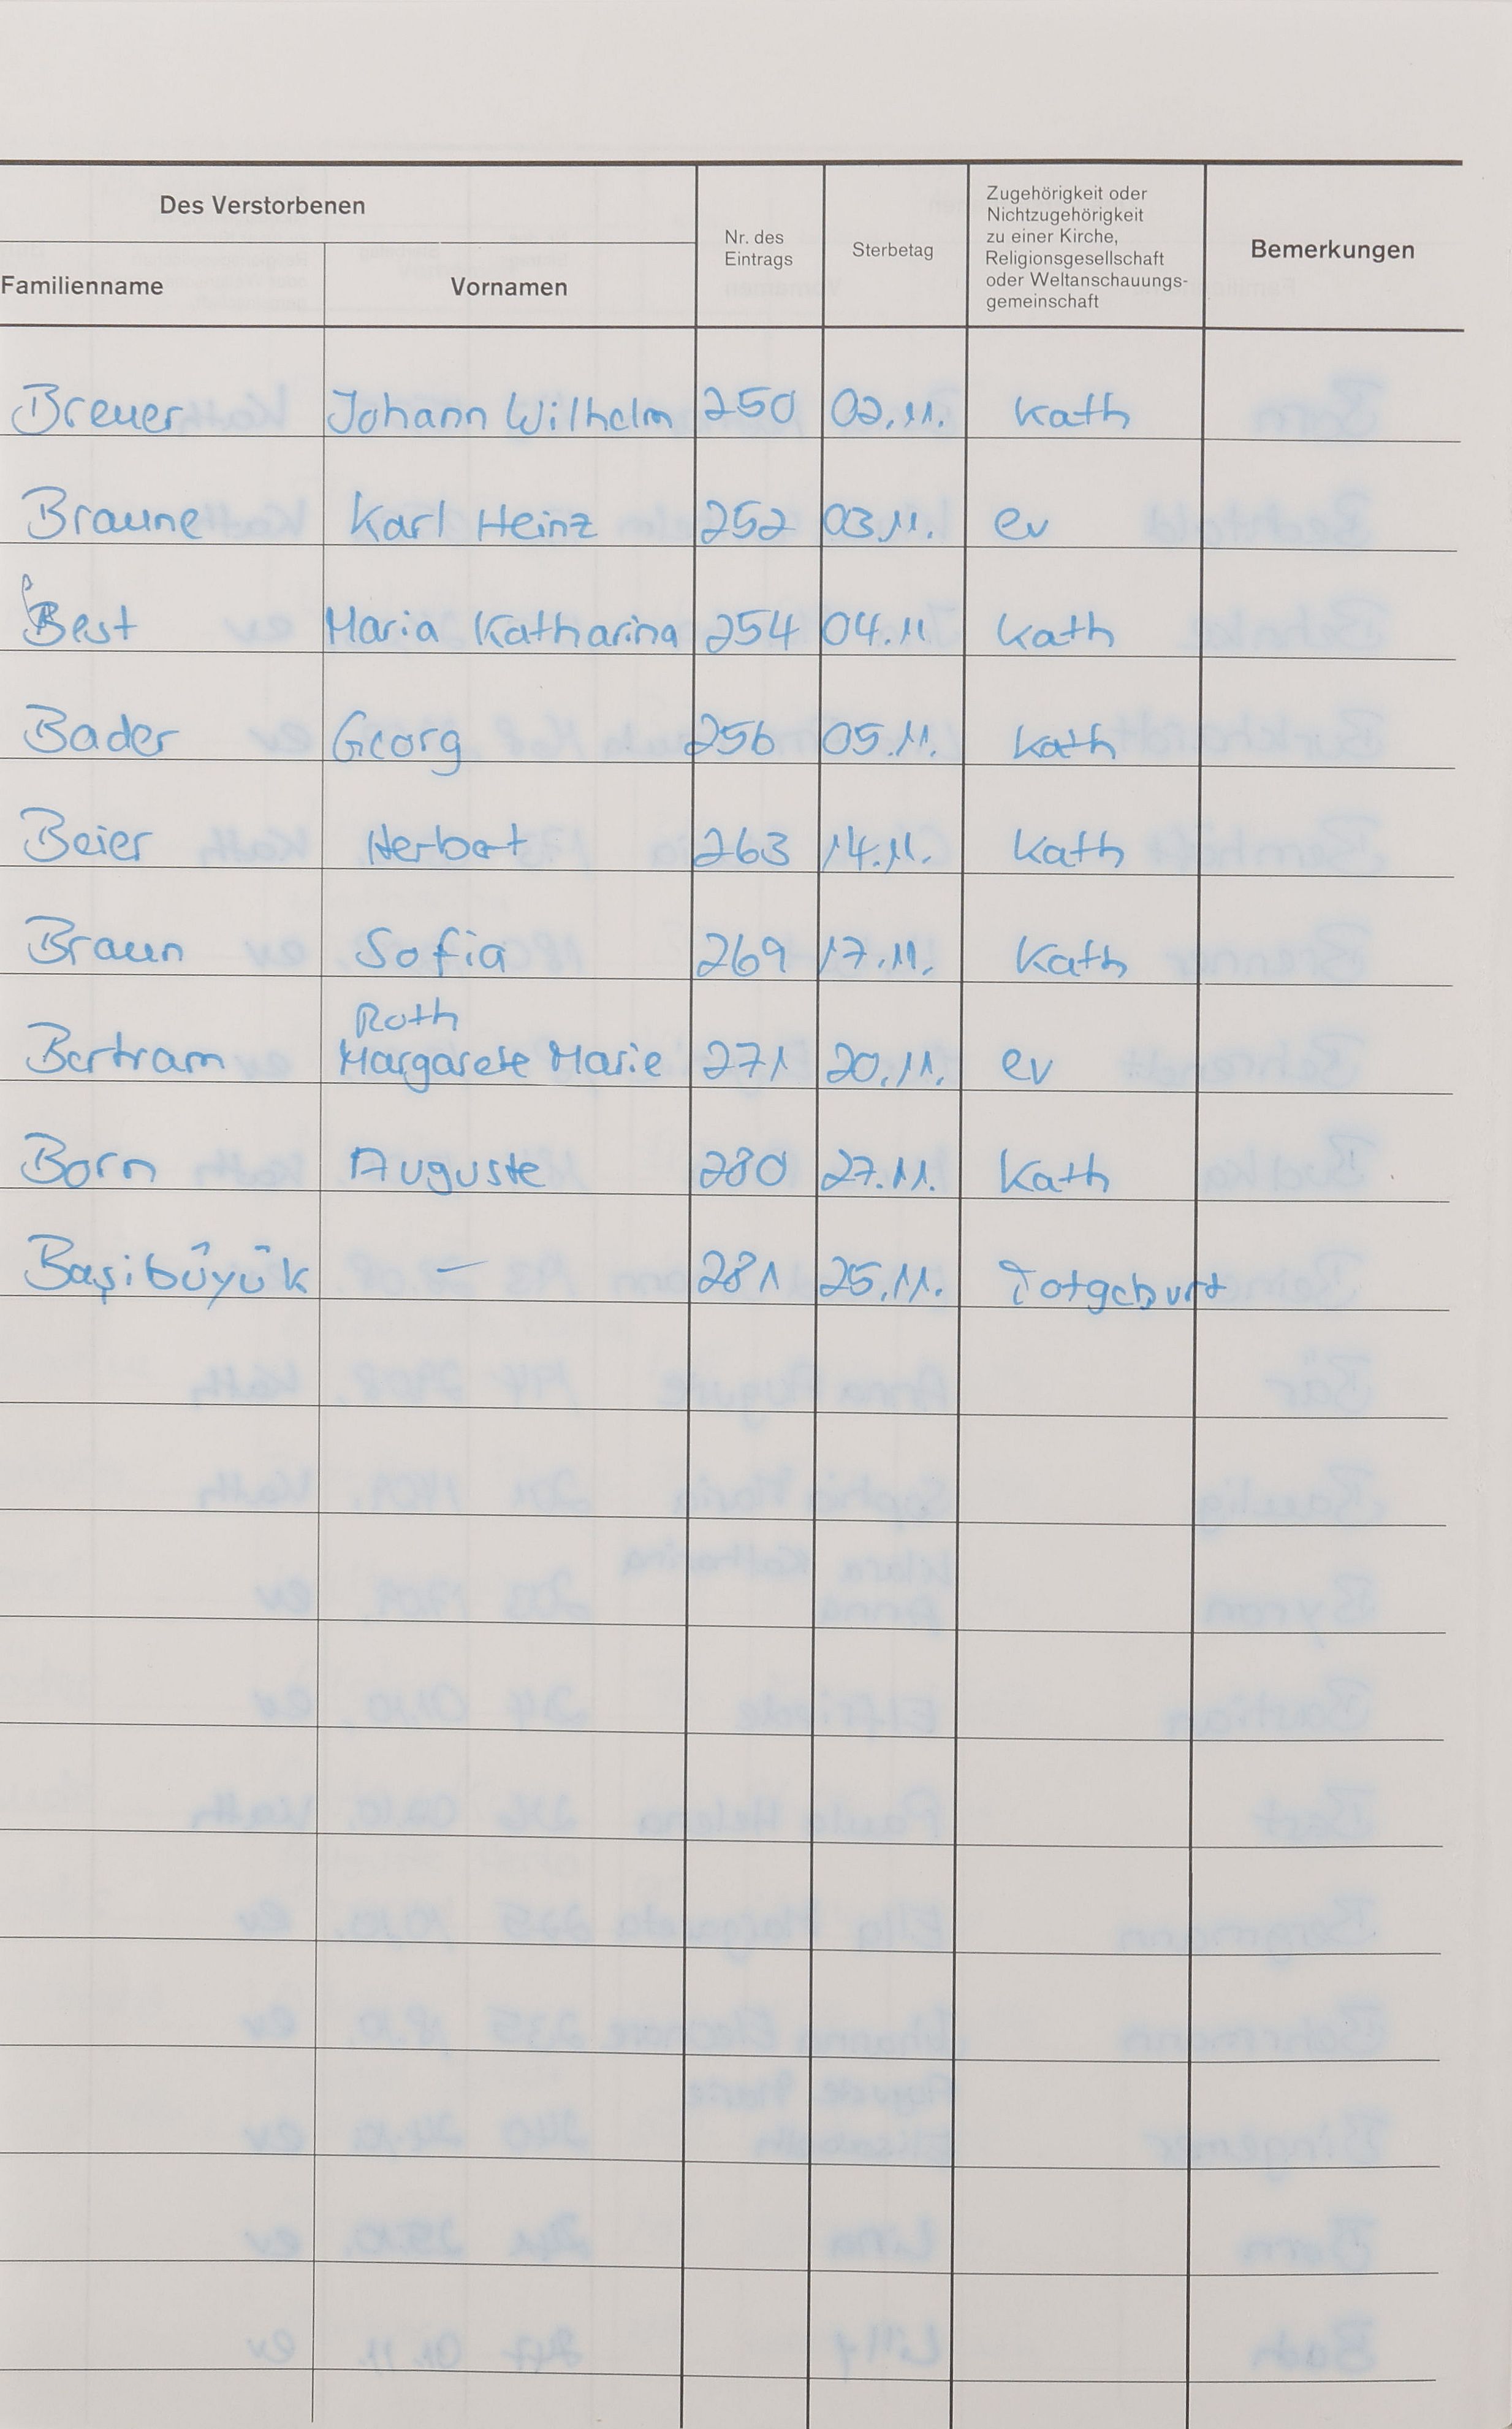 Des Verstorbenen
Familienname Vornamen Nr. des Eintrags Sterbetag Zugehörigkeit oder Nichtzugehörigkeit zu einer Kirche, Religionsgesellschaft oder Weltanschauungs-gemeinschaft Bemerkungen
Breuer Johann Wilhelm 250 02.11. Kath
Braune Karl Heinz 252 03.11. ev
Best Maria Katharina 254 04.11 Kath
Bader Georg 256 05.11. Kath
Beier Herbert 263 14.11. Kath
Braun Sofia 269 17.11. Kath
Roth
Bertram Margarete Marie 271 20.11. ev
Born Auguste 280 27.11. Kath
Başibûyûk — 281 25.11. Totgeburt